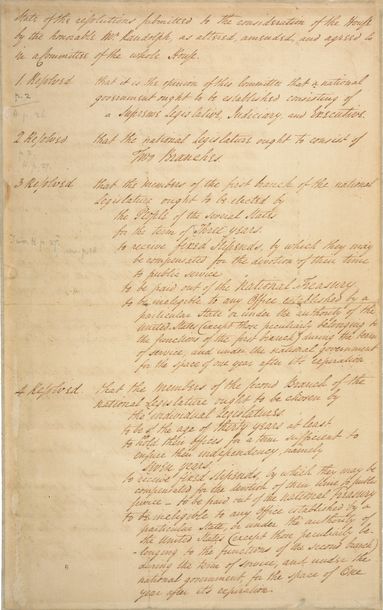 State of the resolutions submitted to the consideration of the House
by the honorable Mr. Randolph, as altered, amended, and agreed to
in a Committee of the whole House.
1 Resolved that it is the opinion of this Committee that a national
government ought to be established consisting of
a Supreme Legislative, Judiciary, and Executive.
2 Resolved that the national Legislature ought to consist of
Two Branches.
3 Resolved that the members of the first branch of the national
Legislature ought to be elected by
the People of the several States
for the term of Three years.
to receive fixed Stipends, by which they may
be compensated for the devotion of their time
to public service
to be paid out of the National Treasury
to be ineligible to any Office established by a
particular State or under the authority of the
United States (except those peculiarly belonging to
the functions of the first branch) during the term
of service, and under the national government
for the space of one year after its expiration
4 Resolved. that the members of the second Branch of the
national Legislature ought to be chosen by
the individual Legislatures.
to be of the age of thirty years at least
to hold their offices for a term sufficient to
ensure their independency, namely
seven years.
to receive fixed stipends, by which they may be
compensated for the devotion of their time to public
service - to be paid out of the National Treasury
to be ineligible to any Office established by a
particular State, or under the authority of
the United States (except those peculiarly be-
-longing to the functions of the second branch)
during the term of service, and under the
national government, for the space of One
year after its expiration.